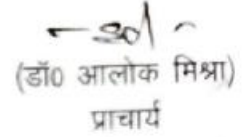 (डॉ0 आलोक मिश्रा)
प्राचार्य